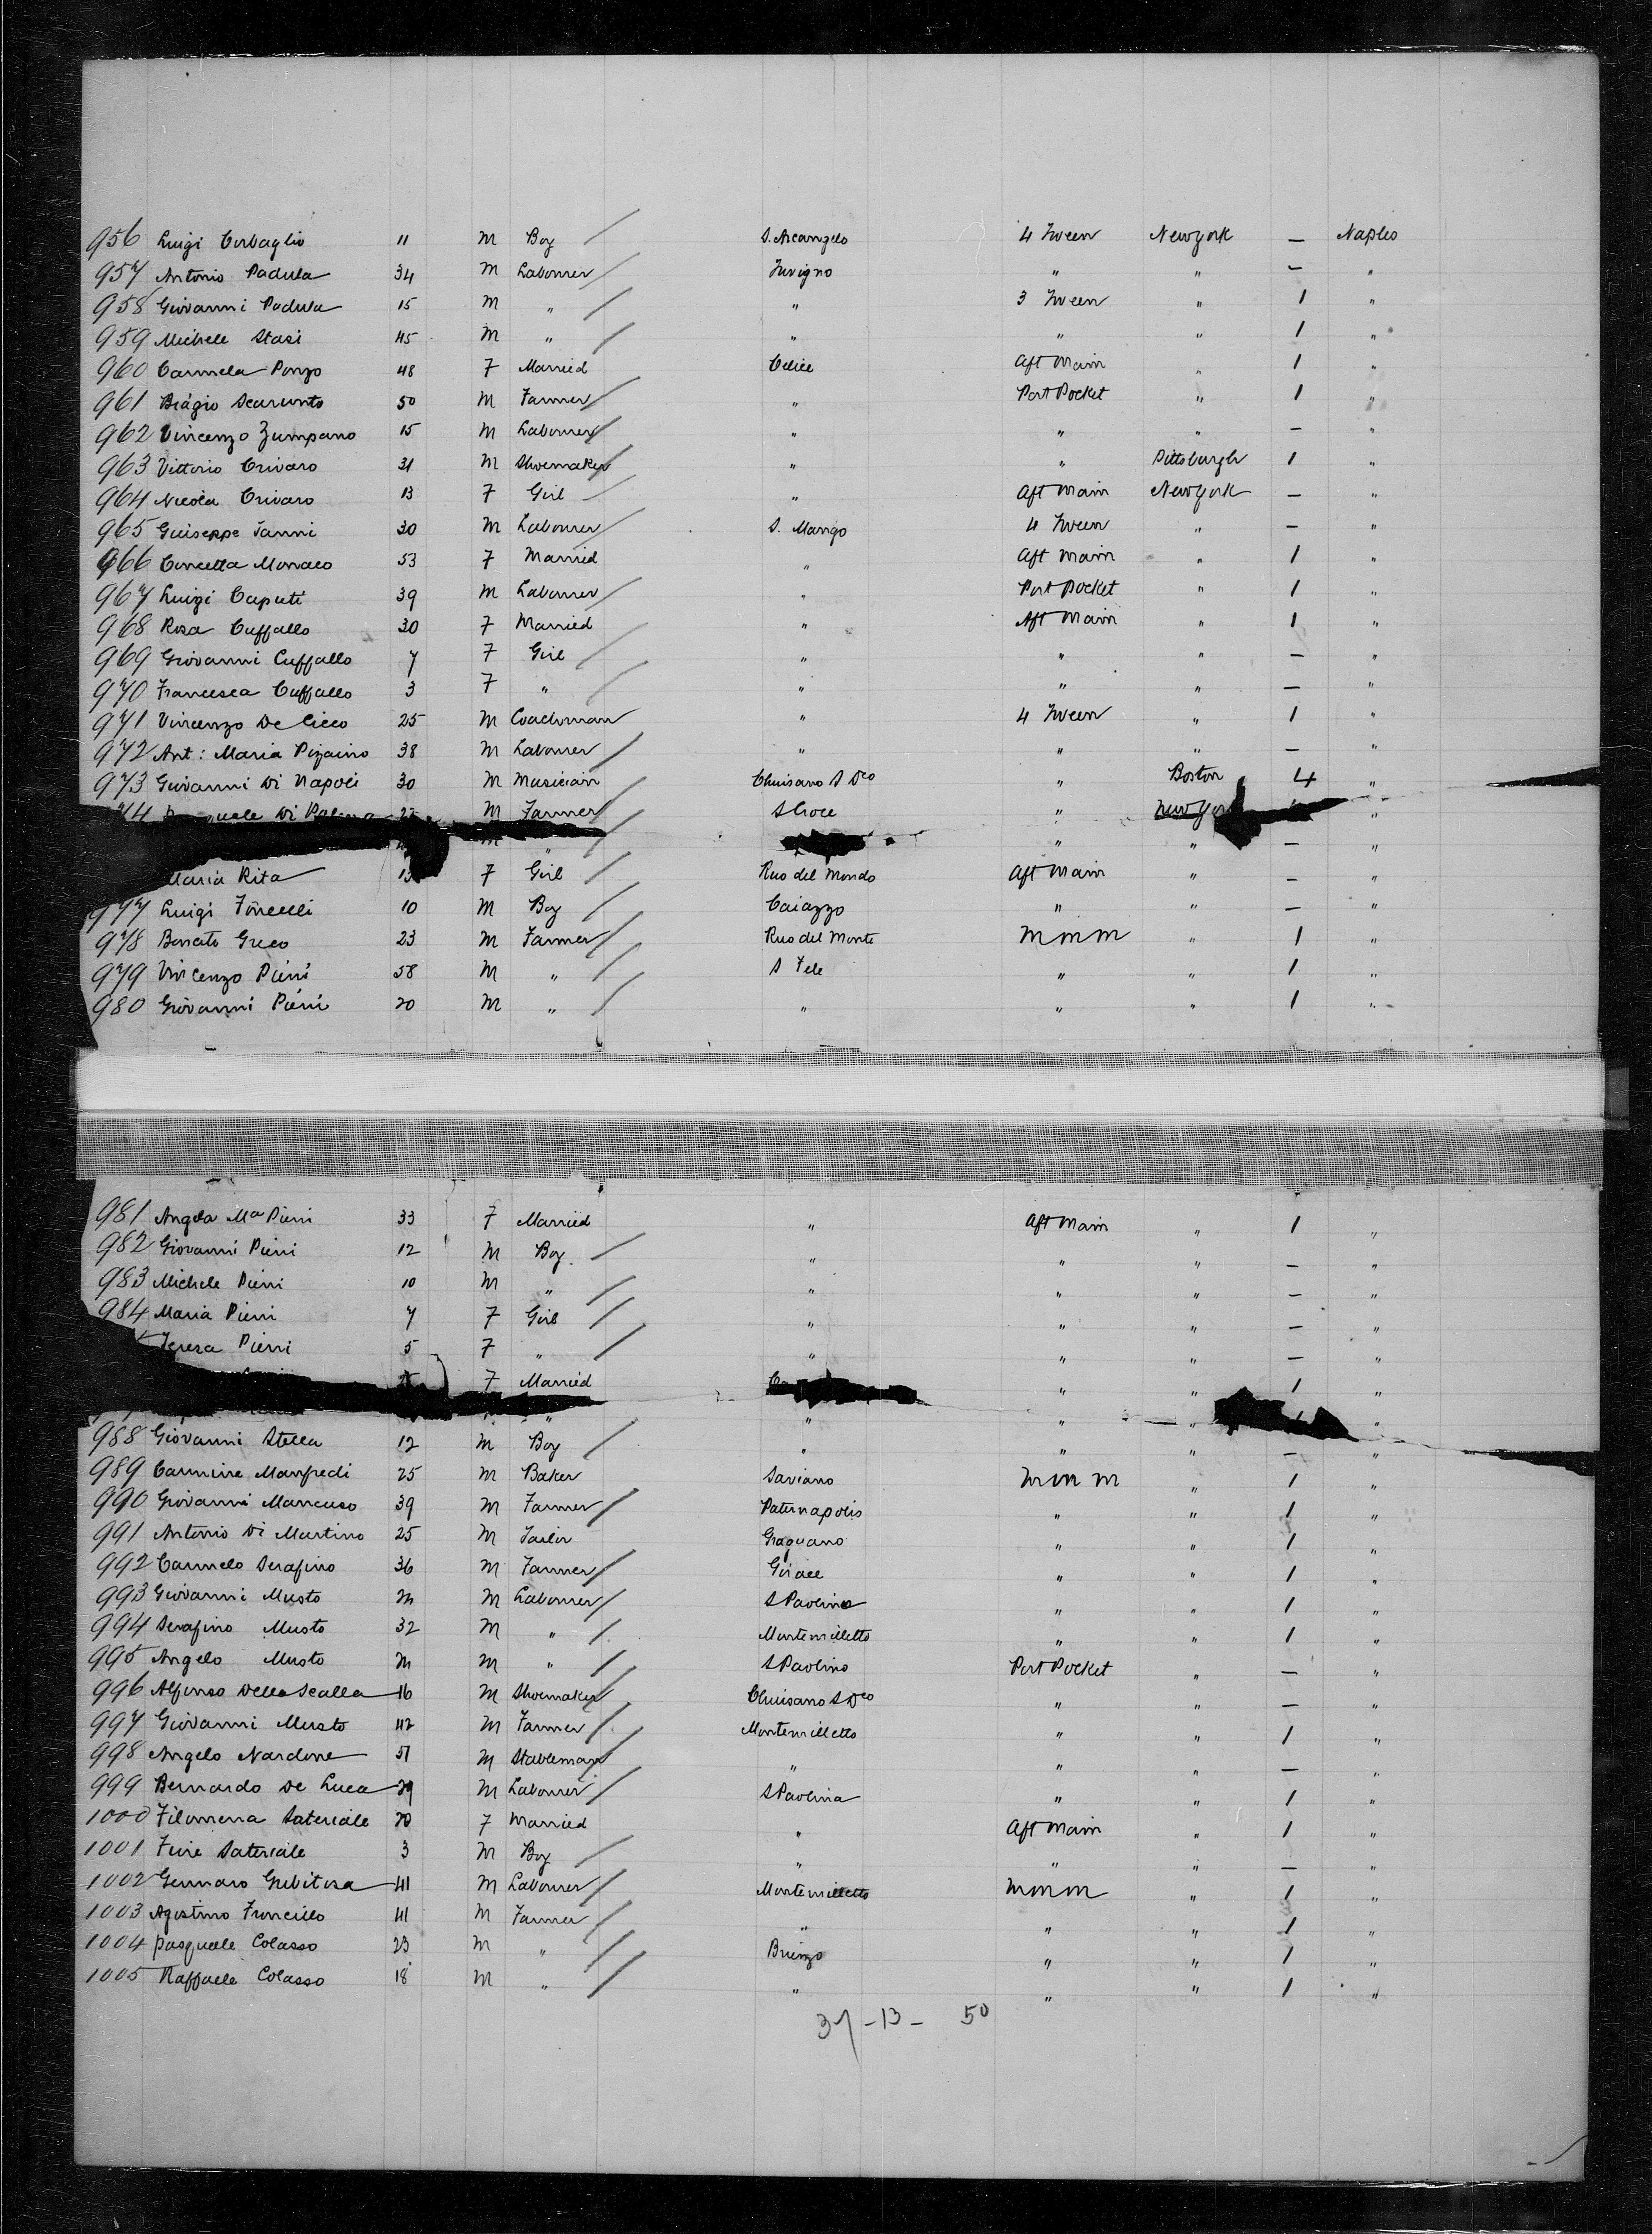 956 Luigi Corbaglio 11 M Boy S. Arcangelo 4 Tween New York — Naples
957 Antonio Padula 34 M Labourer Tuvigno " " — "
958 Giovanni Padula 15 M " " 3 Tween " 1 "
959 Michele Stasi 45 M " " " " 1 "
960 Carmela Ponzo 48 F Married Celice Aft Main " 1 "
961 Biagio Scarunto 50 M Farmer " Port Pocket " 1 "
962 Vincenzo Zumpano 15 M Labourer " " " — "
963 Vittorio Crivaro 31 M Shoemaker " " Pittsburgh 1 "
964 Nicola Crivaro 13 F Girl " Aft Main New York — "
965 Guiseppe Ianni 30 M Labourer S. Mango 4 Tween " — "
966 Concetta Monaco 53 F Married " Aft Main " 1 "
967 Luigi Caputi 39 M Labourer " Port Pocket " 1 "
968 Rosa Cuffallo 30 F Married " Aft Main " 1 "
969 Giovanni Cuffallo 7 F Girl " " " — "
970 Francesca Cuffallo 3 F " " " " — "
971 Vincenzo De Cicco 25 M Coachman " 4 Tween " 1 "
972 Ant: Maria Pizaino 38 M Labourer " " " — "
973 Giovanni Di Napoli 30 M Musician Chuisano S Dco " Boston 4 "
74 Di M Farmer S Croce " New York "
M " " " — "
Maria Rita 13 F Girl Rus del Mondo Aft Main " — "
977 Luigi Foncelli 10 M Boy Caiazzo " " — "
978 Donato Greco 23 M Farmer Rus del Monte M M M " 1 "
979 Vincenzo Pierri 58 M " S Fele " " 1 "
980 Giovanni Pierri 20 M " " " " 1 "
981 Angela Ma Pierri 33 F Married " Aft Main " 1 "
982 Giovanni Pierri 12 M Boy " " " — "
983 Michele Pierri 10 M " " " " — "
984 Maria Pierri 7 F Girl " " " — "
Teresa Pierri 5 F " " " " — "
F Married " " 1 "
" " " " "
988 Giovanni Stella 12 M Boy " " " — "
989 Carmine Manfredi 25 M Baker Saviano M M M " 1 "
990 Giovanni Mancuso 39 M Farmer Paternapolis " " 1 "
991 Antonio Di Martino 25 M Tailor Gragnano " " 1 "
992 Carmelo Serafino 36 M Farmer Gerace " " 1 "
993 Giovanni Musto M Labourer S Paolina " " 1 "
994 Serafino Musto 32 M " Montemilletto " " 1 "
995 Angelo Musto M " S Paolino Port Pocket " — "
996 Alfonso Della Scalla 16 M Shoemaker Chuisano S Dco " " — "
997 Giovanni Musto 42 M Farmer Montemilletto " " 1 "
998 Angelo Nardone 51 M Stableman " " " — "
999 Bernardo De Luca 29 M Labourer S Paolina " " 1 "
1000 Filomena Sateriale 20 F Married " Aft Main " 1 "
1001 Fiore Sateriale 3 M Boy " " " — "
1002 Gennaro Grebitosa 41 M Labourer Montemilletto M M M " 1 "
1003 Agostino Froncillo 41 M Farmer " " " 1 "
1004 Pasquale Colasso 23 M " Brienzo " " 1 "
1005 Raffaele Colasso 18 M " " " " 1 "
37 - 13 - 50